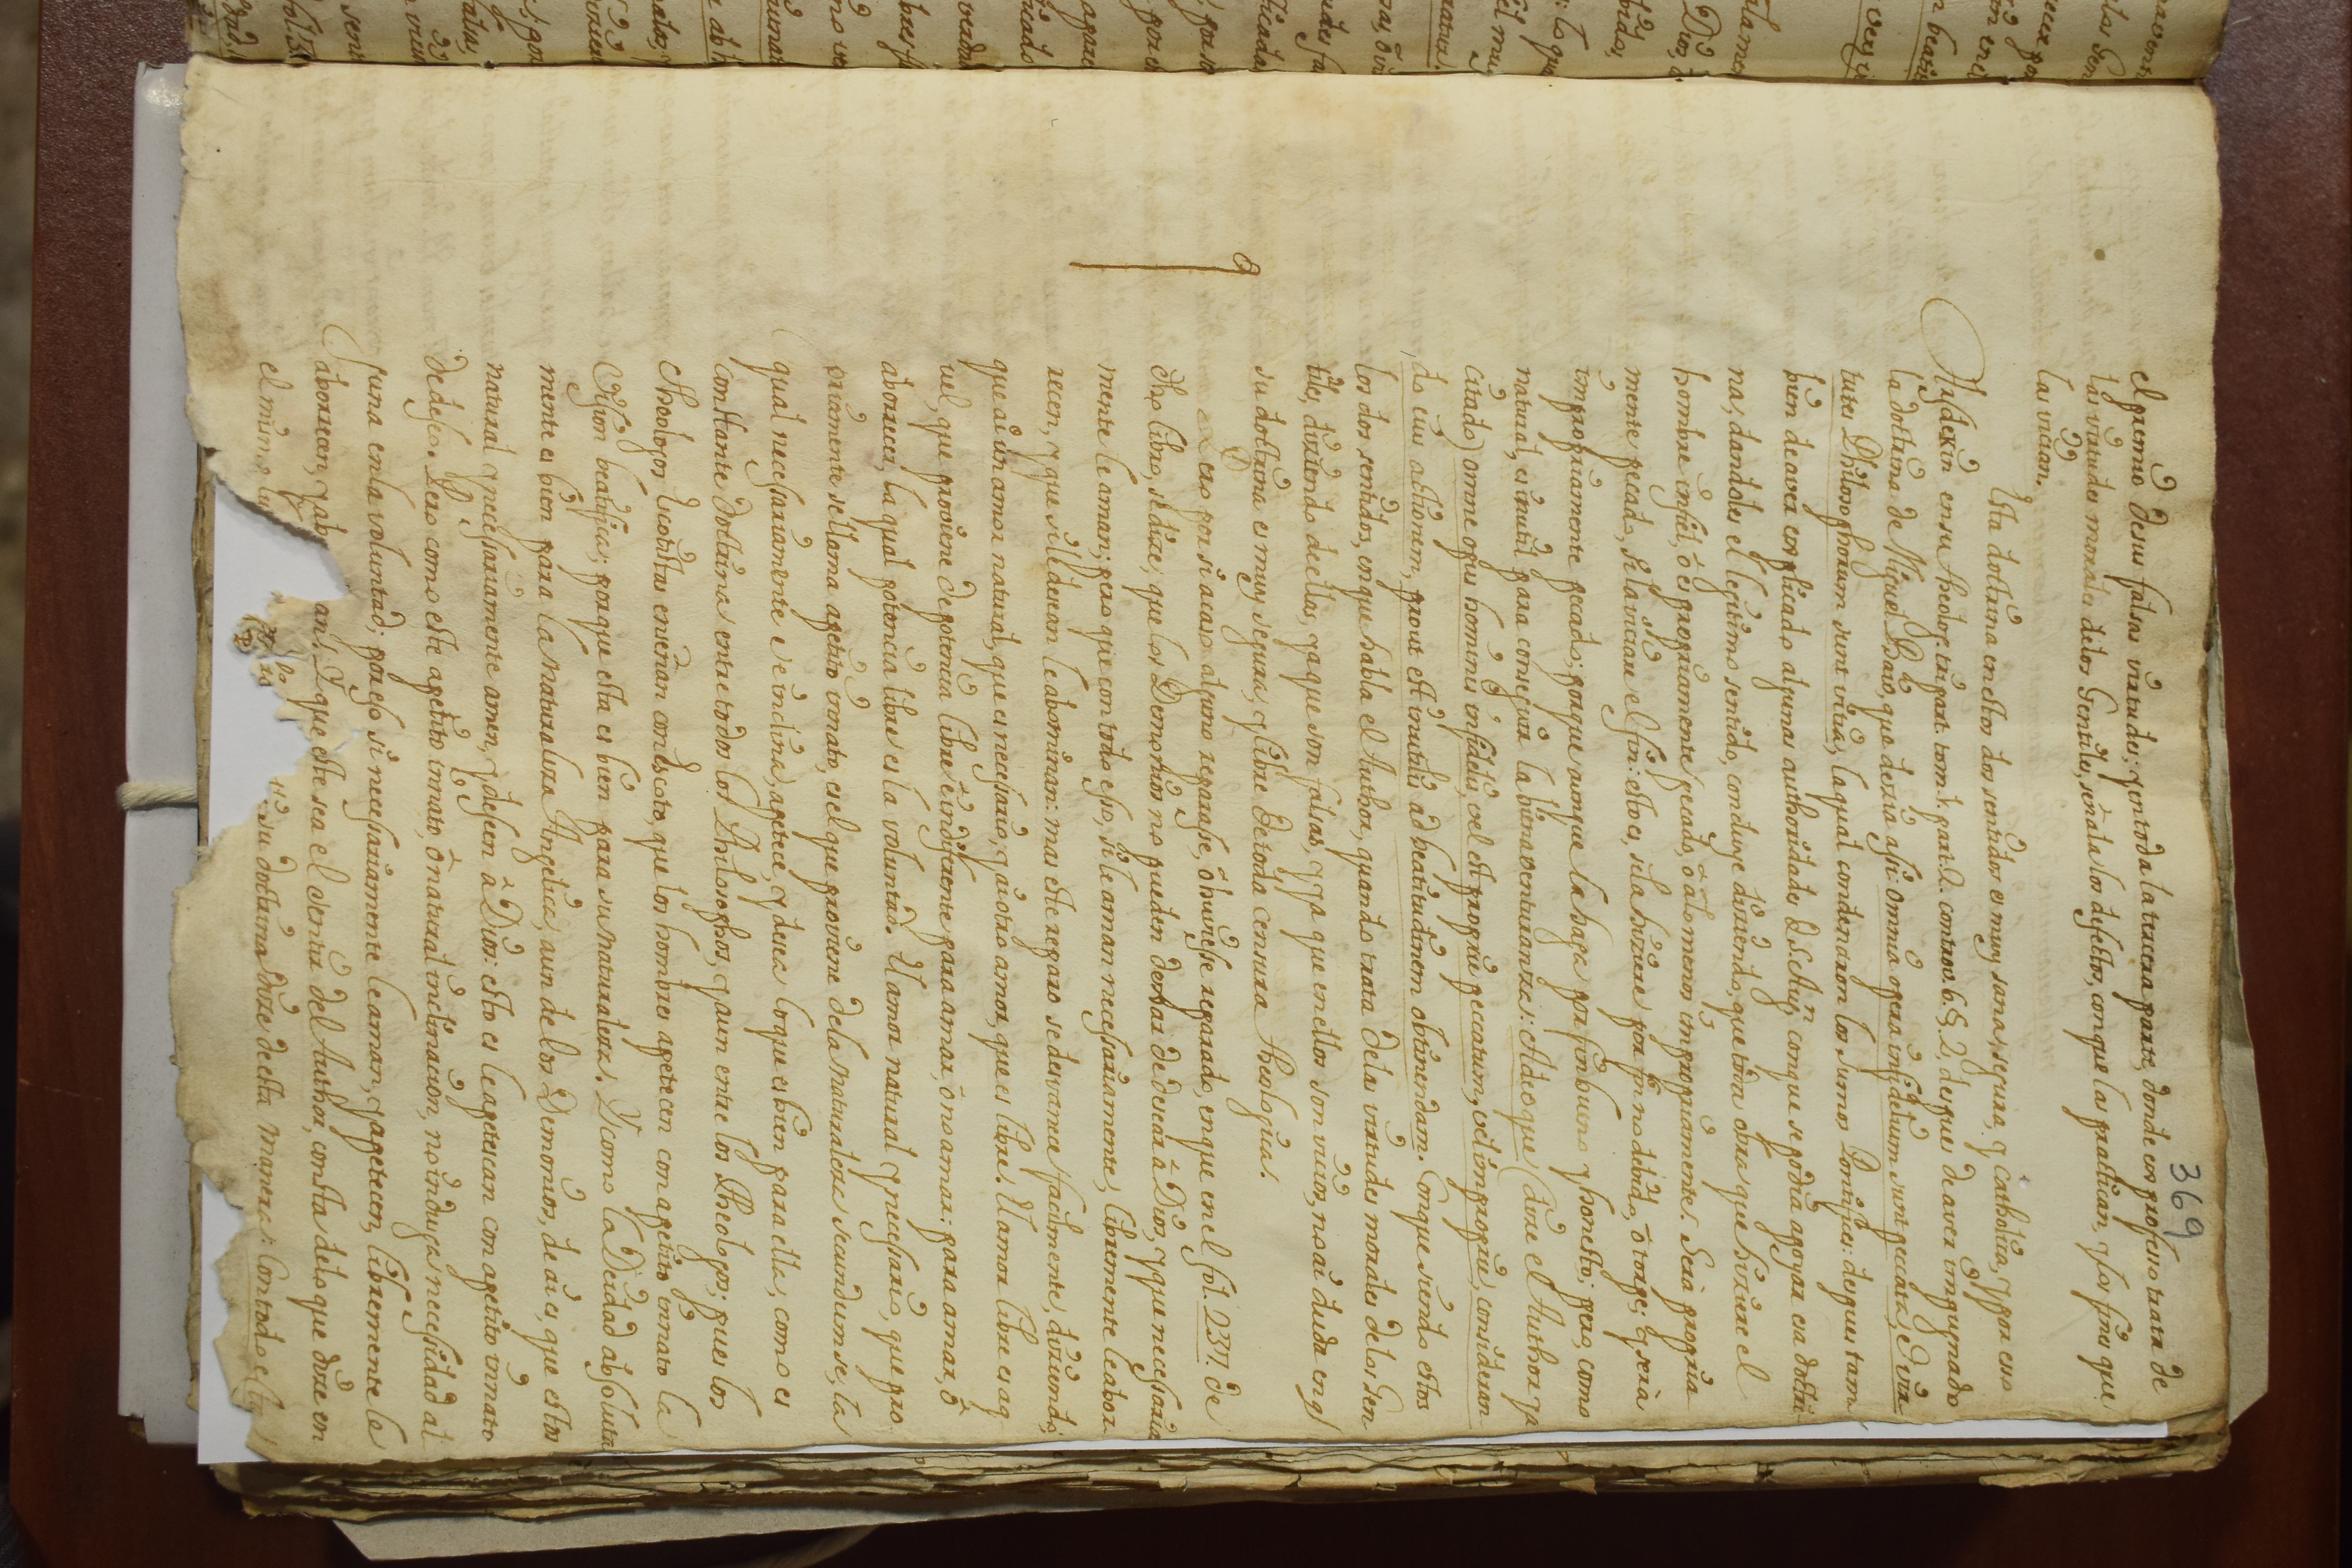 369
el premio de sus falsas virtudes; y en toda la tercera parte, donde ex professo trata de
las virtudes morales de los Gentiles, señala los defectos, con que las practican, y los fines que
las vician.
Esta doctrina en estos dos sentidos es muy sana, segura, y catholica, y por esso
en su Theolog. tripart. tom. 1. part. 2. controv. 6. §. 2. despues de aver impugnado
la doctrina de Miguel Bayo, que dezia assi: Omnia opera infidelium sunt peccata, & vir
tutes Philosophorum sunt vitia, la qual condenaron los Sumos Pontifices: despues tam
bien de aver explicado algunas authoridades D. S. Aug. con que se podia apoyar esa doctri
na, dandoles el legitimo sentido, concluye diziendo, que toda obra que hiziere el
hombre infiel, ò es propriamente pecado, ò à lo menos impropriamente. Sera propria
mente pecado, si la viciare el fin: esto es, si la hiziere por fin no debido, ò torpe; y seria
impropriamente pecado; porque aunque la haga por fin bueno y honesto; pero, como
natural, es inutil para conseguir la bienaventuranza: Adeoque (dize el Author ya
citado) omne opus hominis infidelis, vel est proprie peccatum, vel improprie, consideran
do eius actionem, prout est inutilis ad beatitudinem obtinendam. Conque siendo estos
los dos sentidos, en que habla el Author, quando trata de las virtudes morales de los Gen
tiles, diziendo de ellas, ya que son falsas, y ya que en ellos son vicios, no ai duda en q̃
su doctrina es muy segura, y libre de toda censura Theologica.
Pero por si acaso alguno reparase, ò huviesse reparado, en que en el fol. 237. de
dho libro, se dize; que los Demonios no pueden dexar de desear a Dios, y que necessaria
mente le aman; pero que con todo esso, si le aman necessariamente, libremente le abor
recen, y que si le desean le abominan: mas este reparo se desvanece facilmente, diziendo;
que ai un amor natural, que es necessario, y ai otro amor, que es libre. El amor libre es aq
uel, que proviene de potencia libre è indiferente para amar, ò no amar: para amar, ò
aborrecer, la qual potencia libre es la voluntad. El amor natural y necessario, que pro
priamente se llama apetito innato, es el que proviene de la naturaleza secundum se, la
qual necessariamente se inclina, apetece, y desea lo que es bien para ella, como es
constante doctrina entre todos los Philosophos, y aun entre los Theologos; pues los
Theologos Escotistas enseñan con Escoto, que los hombres apetecen con apetito innato la
Vision beatifica; porque esta es bien para su naturaleza. Y como la Deidad absoluta
mente es bien para la naturaleza Angelica, aun de los Demonios, de ai es, que estos
natural y necessariamente amen, y deseen à Dios: esto es le apetescan con apetito innato
de deseo. Pero como este apetito innato, ò natural inclinacion, no induzga necessidad al
guna en la voluntad; por esso si necessariamente le aman, y apetecen, libremente le
aborrecen, y ab an. Y que este sea el sentir del Author, consta de lo que dize en
el mismo su doctrina dize de esta manera: Con todo